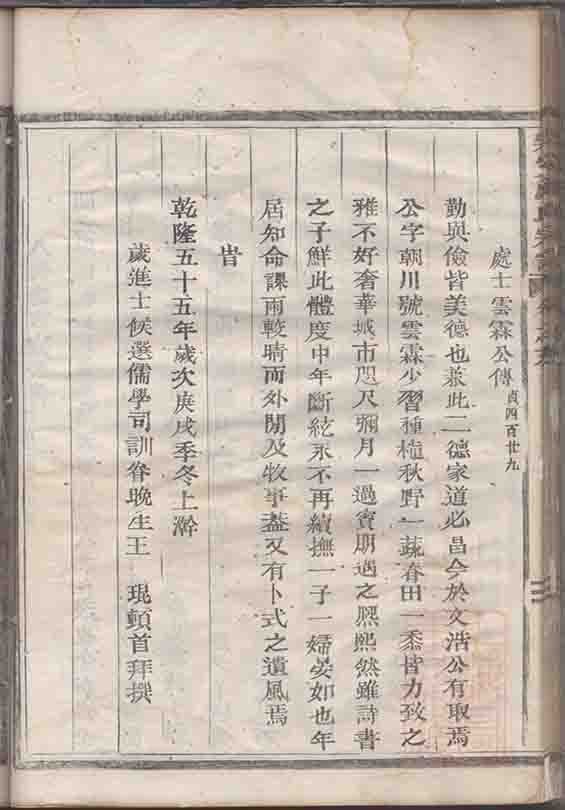 處士雲霖公傳 貞四百廿九
勤與儉皆美德也兼此二德家道必昌今於文浩公有取焉
公字朝川號雲霖少習種植秋野一蔬春田一黍皆力致之
雅不好奢華城市咫尺彌月一過賓朋遇之熙熙然雖詩書
之子鮮此體度中年斷絃永不再續撫一子一婦晏如也年
居知命課雨較晴而外閒及牧事葢又有卜式之遺風焉
旹
乾隆五十五年歲次庚戌季冬上澣
歲進士候選儒學司訓眷晚生王 琨頓首拜撰